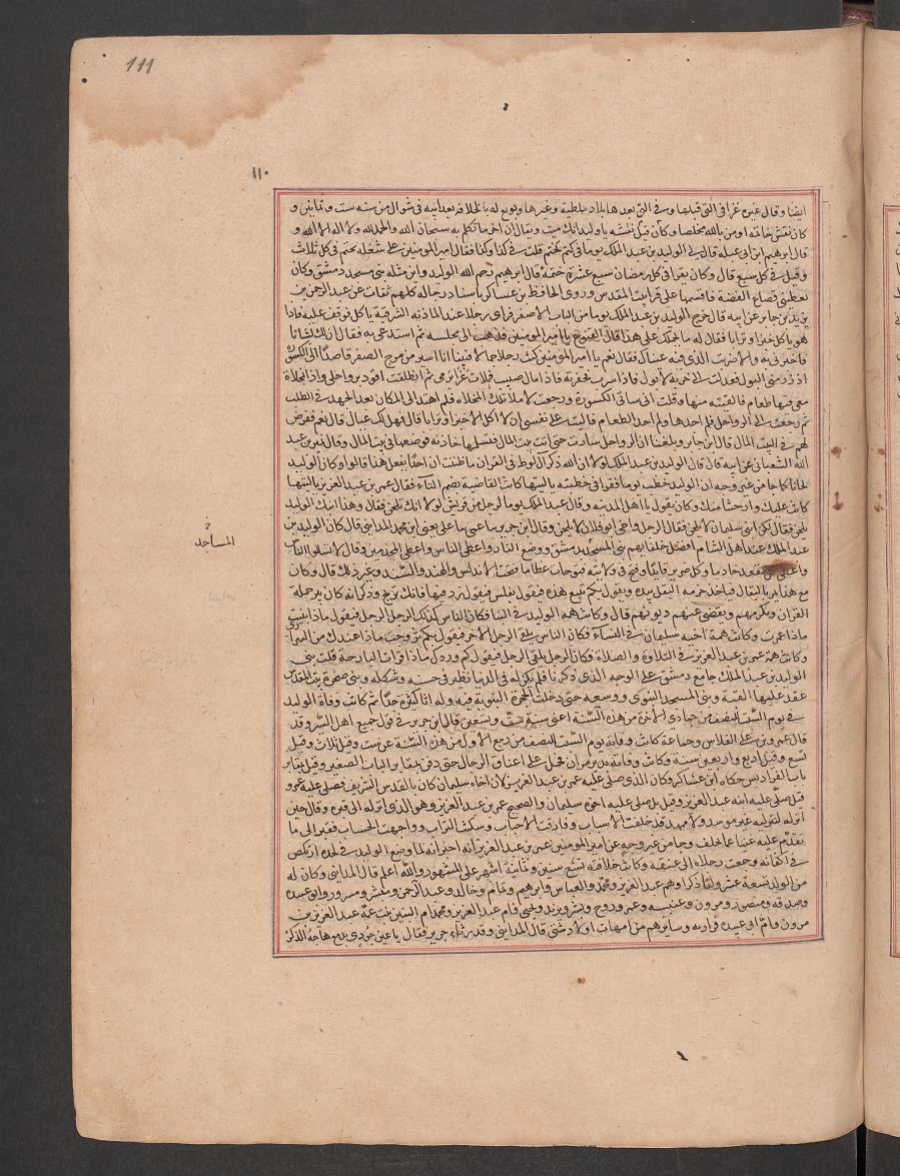 111
١١٠
ايضا وقال غيره غزا في التي قبلها وفي التي بعدها بلاد ملطية وغيرها وبويع له بالخلافة بعد ابيه في شوال من سنه ست وثمانين و
كان نقش خاتمه اومن بالله مخلصا وكان قيل نقشه يا وليد انك ميت ويقال ان اخر ما تكلم به سبحان الله والحمد لله ولا اله الا الله و
قال ابرهيم ابن ابي عبله قال لي الوليد بن عبد الملك يوما في كم تختم قلت في كذا وكذا فقال امير المومنين على شغله يختم في كل ثلاث
وقيل في كل سبع قال وكان يقرا في كل رمضان سبع عشرة ختمة قال ابرهيم رحم الله الوليد واين مثله بنى مسجد دمشق وكان
يعطيني قصاع الفضة فاقسمها على قرا بيت المقدس وروى الحافظ بن عساكر باسناد رجاله كلهم ثقات عن عبد الرحمن بن
يزيد بن جابر عن ابيه قال خرج الوليد بن عبد الملك يوما من الباب الاصغر فراى رجلا عند الماذنه الشرقية ياكل فوقف عليه فاذا
هو ياكل خبزا وترابا فقال له ما حملك على هذا قال القنوع يا امير المومنين فذهب الى مجلسه ثم استدعى به فقال ان لك لشانا
فاخبرني به والا ضربت الذي فيه عيناك فقال نعم يا امير المومنين كنت رجلا جمالا فبينا انا اسير من مرج الصفر قاصدا الى الكسوة
اذ زرمني البول فعدلت الى خربة لابول فاذا سرب فحفرته فاذا مال صبيب فملات غرايري ثم انطلقت اقود برواحلي واذا بمخلاة
معي فيها طعام فالقيته منها وقلت اني ساتي الكسوة ورجعت لاملا تلك المخلاه فلم اهتد الى المكان بعد الجهد في الطلب
ثم رجعت الى الرواحل فلم اجدها ولم اجد الطعام فاليت على نفسي ان لا اكل الا خبزا وترابا قال فهل لك عيال قال نعم ففرض
لهم في البيت المال قال ابن جابر وبلغنا ان الرواحل سارت حتى اتت بيت المال فتسلمها خازنه فوضعها في بيت المال وقال نمير بن عبد
الله الشعباني عن ابيه قال قال الوليد بن عبد الملك لولا ان الله ذكر آل لوط في القران ما ظننت ان احدا يفعل هذا قالوا وكان الوليد
لحانا كما جا من غير وجه ان الوليد خطب يوما فقرا في خطبته يا ليتها كانت القاضية بضم التاء فقال عمر بن عبد العزيز يا ليتها
كانت عليك وارحتنا منك وكان يقول يا اهل المدينه وقال عبد الملك يوما لرجل من قريش لولا انك تلحن فقال وهذا ابنك الوليد
يلحن فقال لكن ابني سليمان لا يلحن فقال الرجل واخي ابو فلان لا يلحن وقال ابن جرير ثنا عمر ثنا علي يعني ابن محمد المدايني قال كان الوليد بن
عبد الملك عند اهل الشام افضل خلفايهم بنى المسجد بدمشق ووضع المنار واعطى الناس واعطى المجذمين وقال لا تسئلوا الناس
المساجد
واعطى كل مقعد خادما وكل ضرير قايدا وفتح في ولايته فتوحات عظاما ففتحت الاندلس والهند والسند وغير ذلك قال وكان
مع هذا يمر بالبقال فياخذ حزمه البقل بيده ويقول بكم تبيع هذه فيقول بفلس فيقول زد فيها فانك تربح وذكر انه كان يبر حمله
القران ويكرمهم ويقضي عنهم ديونهم قال وكانت همه الوليد في البنا فكان الناس كذلك الرجل الرجل فيقول ماذا بنيت
ماذا عمرت وكانت همة اخيه سليمان في النساء فكان الناس يلقى الرجل الاخر فيقول كم تزوجت ماذا عندك من السراري
وكانت همة عمر بن عبد العزيز في التلاوة والصلاة فكان الرجل يلقى الرجل فيقول كم وردك ماذا قرات البارحة قلت بنى
الوليد بن عبد الملك جامع دمشق على الوجه الذي ذكرنا فلم يكن له في الدنيا نظير في حسنه وشكله وبنى صخرة بيت المقدس
عقد عليها القبة وبنى المسجد النبوي ووسعه حتى دخلت الحجرة النبوية فيه وله اثار كثيرة جدا ثم كانت وفاة الوليد
في يوم السبت للنصف من جمادى الاخرة من هذه السنة اعني سنة ست وتسعين قال ابن جرير في قول جميع اهل السير وقد
قال عمرو بن علي الفلاس وجماعة كانت وفاته يوم السبت للنصف من ربيع الاول من هذه السنة عن ست وقيل ثلاث وقيل
تسع وقيل اربع واربعين سنة وكانت وفاته بدير مران فحمل على اعناق الرجال حتى دفن بمقابر الباب الصغير وقيل بمقابر
باب الفراديس حكاه ابن عساكر وكان الذي صلى عليه عمر بن عبد العزيز لان اخاه سليمان كان بالقدس الشريف فصلى عليه عمر و
قيل صلى عليه ابنه عبد العزيز وقيل بل صلى عليه اخوه سليمان والصحيح عمر بن عبد العزيز وهو الذي انزله الى قبره وقال حين
انزله لننزلنه غير موسد ولا ممهد قد خلفت الاسباب وفارقت الاحباب وسكنت التراب وواجهت الحساب فقير الى ما
تقدم عليه غنيا عما خلف وجا من غير وجه عن امير المومنين عمر بن عبد العزيز انه اخبر انه لما وضع الوليد في لحده ارتكض
في اكفانه وجمعت رجلاه الى عنقه وكانت خلافته تسع سنين وثمانية اشهر على المشهور والله اعلم قال المدايني وكان له
من الولد تسعة عشر ولدا ذكرا وهم عبد العزيز ومحمد والعباس وابرهيم وتمام وخالد وعبد الرحمن ومبشر ومسرور وابو عبيده
وصدقه ومنصور ومرون وعنبسه وعمر وروح وبشر ويزيد ويحيى فام عبد العزيز ومحمد ام البنين بنت عمه عبد العزيز بن
مرون وام ابي عبيده فزاريه وسايرهم من امهات اولاد شتى قال المدايني وقد رثاه جرير فقال يا عين جودي بدمع هاجه الذكر